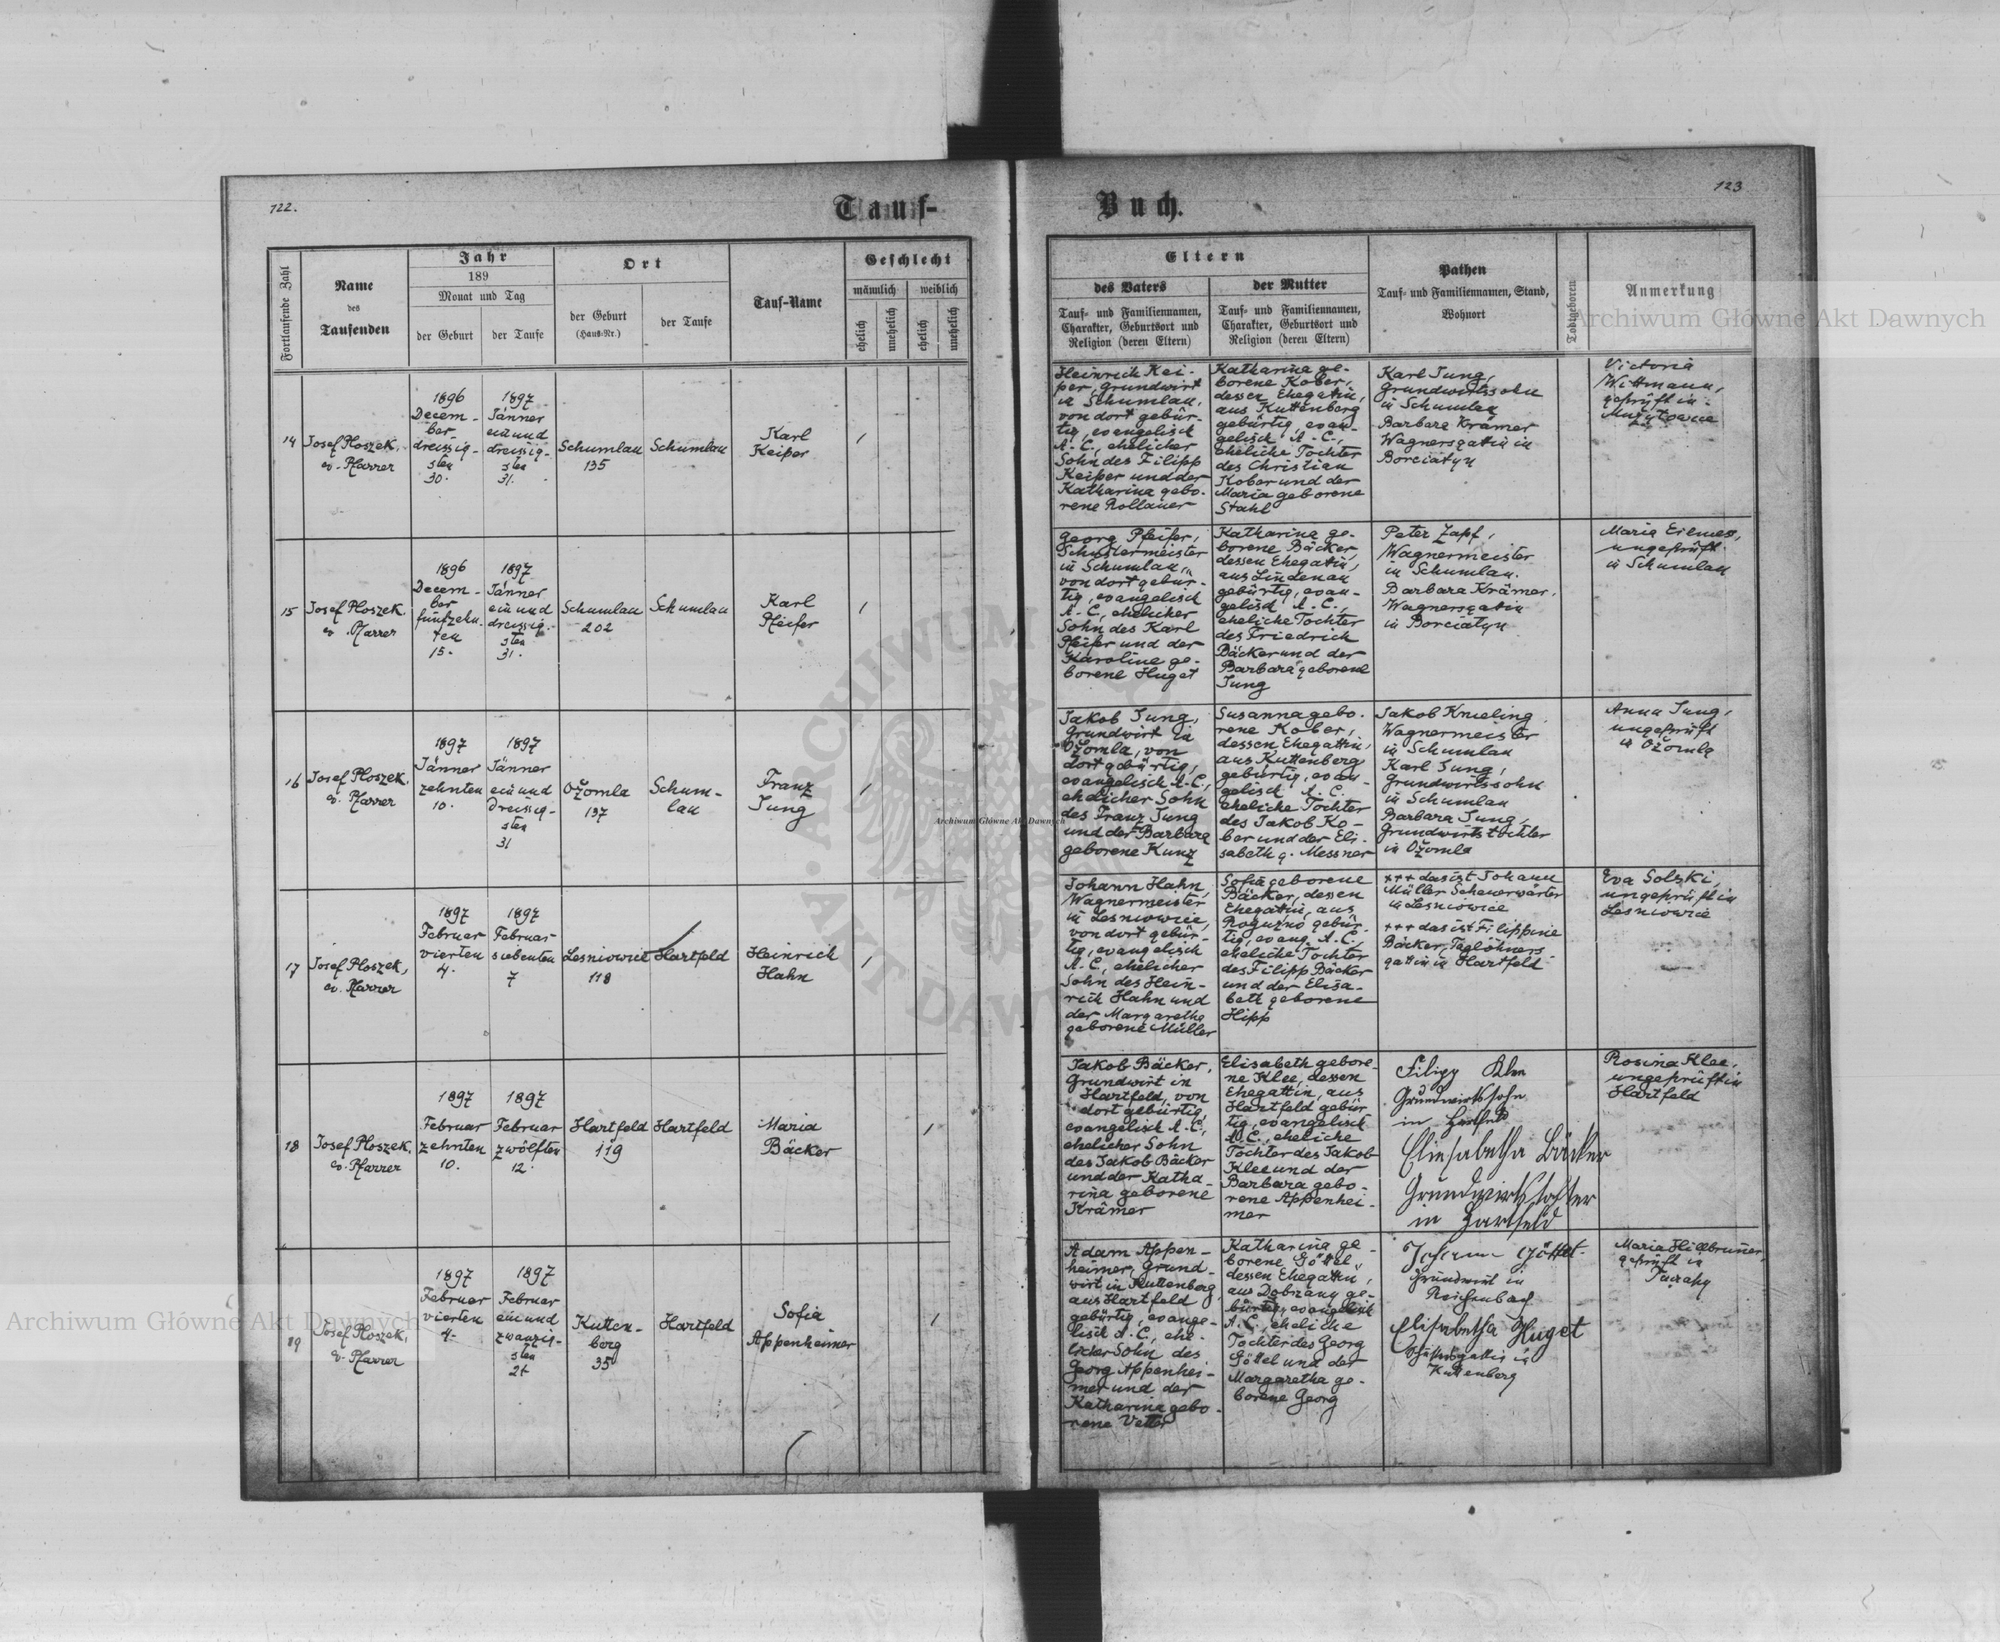 122.
Tauf-
Buch.
123
Fortlaufende Zahl
Name
des
Taufenden
Jahr
189
Monat und Tag
der Geburt
der Taufe
Ort
der Geburt
(Haus-Nr.)
der Taufe
Tauf-Name
Geschlecht
männlich
weiblich
ehelich
unehelich
ehelich
unehelich
Eltern
des Vaters
Tauf- und Familiennamen,
Charakter, Geburtsort und
Religion (deren Eltern)
der Mutter
Tauf- und Familiennamen,
Charakter, Geburtsort und
Religion (deren Eltern)
Pathen
Tauf- und Familiennamen, Stand,
Wohnort
Todtgeboren
Anmerkung
14
Josef Ploszek,
ev. Pfarrer
1896
Decem-
ber
dreissig-
sten
30.
1897
Jänner
ein und
dreissig-
sten
31.
Schumlau
135
Schumlau
Karl
Keiper
1
Heinrich Kei-
per, Grundwirt
in Schumlau,
von dort gebür-
tig, evangelisch
A.C., ehelicher
Sohn des Filipp
Keiper und der
Katharina gebo-
rene Rollauer
Katharina ge-
borene Kober,
dessen Ehegattin,
aus Kuttenberg
gebürtig, evan-
gelisch A.C.,
eheliche Tochter
des Christian
Kober und der
Maria geborene
Stahl
Karl Jung,
Grundwirtssohn
in Schumlau
Barbara Krämer
Wagnersgattin in
Borciatyn
Victoria
Wittmann,
geprüft in
15
Josef Ploszek,
ev. Pfarrer
1896
Decem-
ber
fünfzehn-
ten
15.
1897
Jänner
ein und
dreissig-
sten
31.
Schumlau
202
Schumlau
Karl
Pfeifer
1
Georg Pfeifer,
Schustermeister
in Schumlau,
von dort gebür-
tig, evangelisch
A.C., ehelicher
Sohn des Karl
Pfeifer und der
Karoline ge-
borene Huget
Katharina ge-
borene Bäcker,
dessen Ehegattin,
aus Lindenau
gebürtig, evan-
gelisch A.C.,
eheliche Tochter
des Friedrich
Bäcker und der
Barbara geborene
Jung
Peter Zapf,
Wagnermeister
in Schumlau.
Barbara Krämer,
Wagnersgattin
in Borciatyn
Maria Eilmes,
ungeprüft
in Schumlau
16
Josef Ploszek,
ev. Pfarrer
1897
Jänner
zehnten
10.
1897
Jänner
ein und
dreissig-
sten
31
Ožomla
137
Schum-
lau
Franz
Jung
1
Jakob Jung,
Grundwirt in
Ožomla, von
dort gebürtig,
evangelisch A.C.,
ehelicher Sohn
des Franz Jung
und der Barbara
geborene Kunz
Susanna gebo-
rene Kober,
dessen Ehegattin,
aus Kuttenberg
gebürtig, evan-
gelisch A.C.
eheliche Tochter
des Jakob Ko-
ber und der Eli-
sabeth g. Messner
Jakob Knieling,
Wagnermeister
in Schumlau
Karl Jung,
Grundwirtssohn
in Schumlau
Barbara Jung,
Grundwirtstochter
in Ožomla
Anna Jung,
ungeprüft
in Ožomla
17
Josef Ploszek,
ev. Pfarrer
1897
Februar
vierten
4.
1897
Februar
siebenten
7
Lesniowice
118
Hartfeld
Heinrich
Hahn
1
Johann Hahn,
Wagnermeister
in Lesniowice,
von dort gebür-
tig, evangelisch
A.C., ehelicher
Sohn des Hein-
rich Hahn und
der Margaretha
geborene Müller
Sofia geborene
Bäcker, dessen
Ehegattin, aus
Roguzno gebür-
tig, evang. A.C.,
eheliche Tochter
des Filipp Bäcker
und der Elisa-
beth geborene
Hipp
+++ das ist Johann
Müller
in Lesniowice
+++ das ist Filippine
Bäcker, Taglöhners-
gattin in Hartfeld
Eva Solzki,
ungeprüft in
Lesniowice
18
Josef Ploszek,
ev. Pfarrer
1897
Februar
zehnten
10.
1897
Februar
zwölften
12.
Hartfeld
119
Hartfeld
Maria
Bäcker
1
Jakob Bäcker,
Grundwirt in
Hartfeld, von
dort gebürtig,
evangelisch A.C.,
ehelicher Sohn
des Jakob Bäcker
und der Katha-
rina geborene
Krämer
Elisabeth gebore-
ne Klee, dessen
Ehegattin, aus
Hartfeld gebür-
tig, evangelisch
A.C., eheliche
Tochter des Jakob
Klee und der
Barbara gebo-
rene Appenhei-
mer
Filipp Klee
Grundwirtssohn
in Hartfeld
Eliesabetha Bäcker
Grundwirtstochter
in Hartfeld
Rosina Klee,
ungeprüft in
Hartfeld
19
Josef Ploszek,
ev. Pfarrer
1897
Februar
vierten
4.
1897
Februar
ein und
zwanzig-
sten
21.
Kutten-
berg
35
Hartfeld
Sofia
Appenheimer
1
Adam Appen-
heimer, Grund-
wirt in Kuttenberg,
aus Hartfeld
gebürtig, evange-
lisch A.C., ehe-
licher Sohn des
Georg Appenhei-
mer und der
Katharina gebo-
rene Vetter
Katharina ge-
borene Göttel,
dessen Ehegattin,
aus Dobrzany ge-
bürtig, evangelisch
A.C., eheliche
Tochter des Georg
Göttel und der
Margaretha ge-
borene Georg
Johann Göttel
Grundwirt in
Reichenbach
Elisabetha Huget
in
Kuttenberg
Maria Hillbrunner
geprüft in
Archiwum Główne Akt Dawnych
Archiwum Główne Akt Dawnych
Archiwum Główne Akt Dawnych